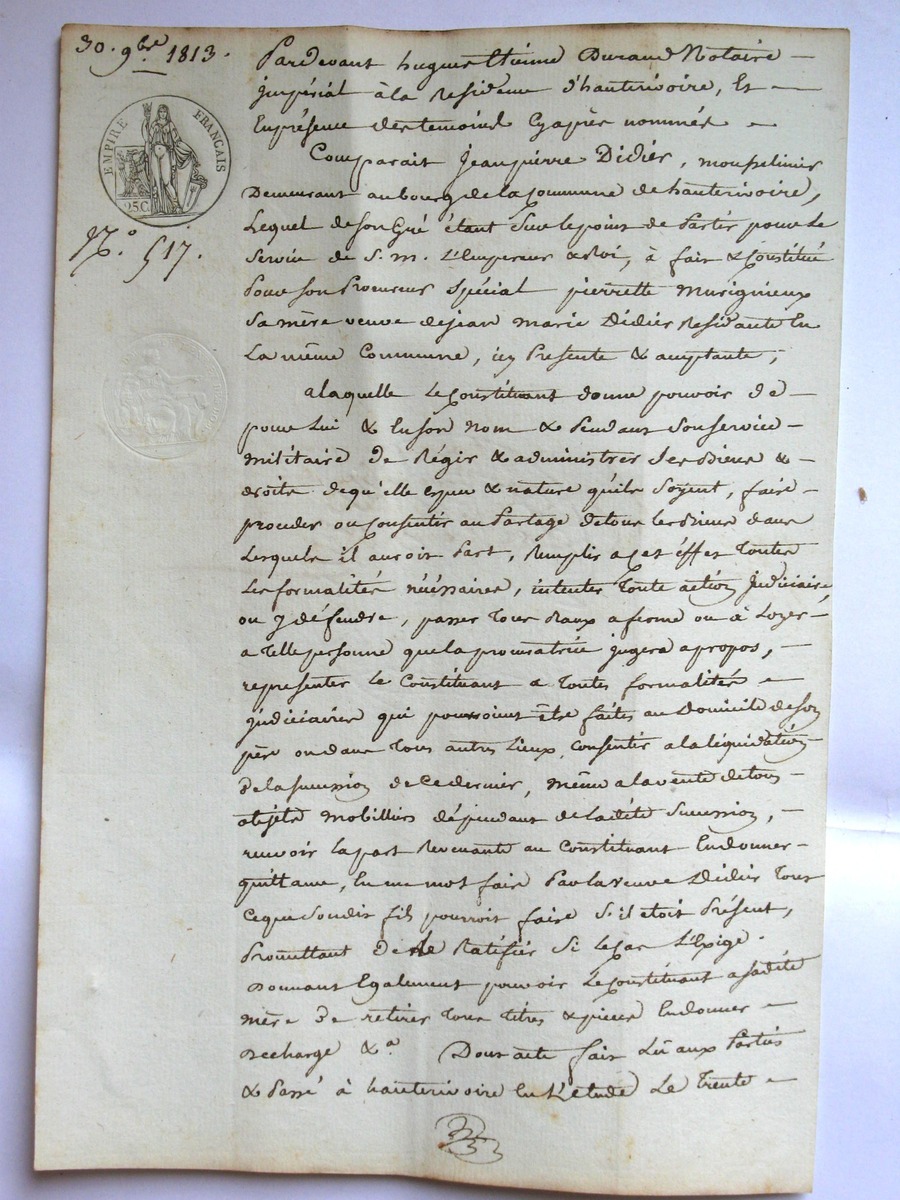 30. 9bre 1813.
EMPIRE FRANÇAIS
25 C.
N.o 517.
Pardevant hugues Etienne Durand Notaire
jmpérial à la Residence d'hauterivoire, Et
En présence des temoins Cyaprès nommés
Comparait Jean pierre Didier,
Demeurant au bourg de la Commune de hauterivoire,
Lequel de son Gré étant Sur le point de Partir pour Le
Service de S. m. L'Empereur & Roi, à fait & Constitué
Pour son Procureur Spécial pierrette Murigneux
Sa mère veuve de jean marie Didier Residante En
La même Commune, icy Presente & acceptante,
a laquelle Le Constituant donne pouvoir de
pour Lui & En son nom & Pendant Son service
militaire de Régir & administrer Ses Biens &
droits de qu'elle espece & nature qu'ils soyent, faire
proceder ou Consentir au Partage de tous les Biens dans
Lesquels il auroit Part, Remplir a cet éffet Toutes
Les formalités nécéssaires, intenter Toute action Judiciaire
ou y défendre, passer Tous Baux a ferme ou à Loyer
a Telle personne que la procuratrice jugera apropos,
representer Le Constituant a Toutes formalités
judiciaires qui pourroient être faites au Domicile de son
père ou dans Tous autres Lieux, Consentir a la liquidation
de la succession de Ce dernier, même a la vente de tous
objets mobilliers dépendant de la dité Succession,
recevoir la part Revenante au Constituant En donner
quittance, En un mot faire Par la veuve Didier Tout
Ce que Son dit fils pourroit faire S'il etoit Présent,
Promettant de Le Ratifier Si Le Cas L'Exige.
Donnant Egalement pouvoir Le Constituant a sadite
mère De retirer Tous Titres & pieces En donner
Decharge &a Dont acte fait Lû aux Parties
& Passé à hauterivoire En L'etude Le Trente